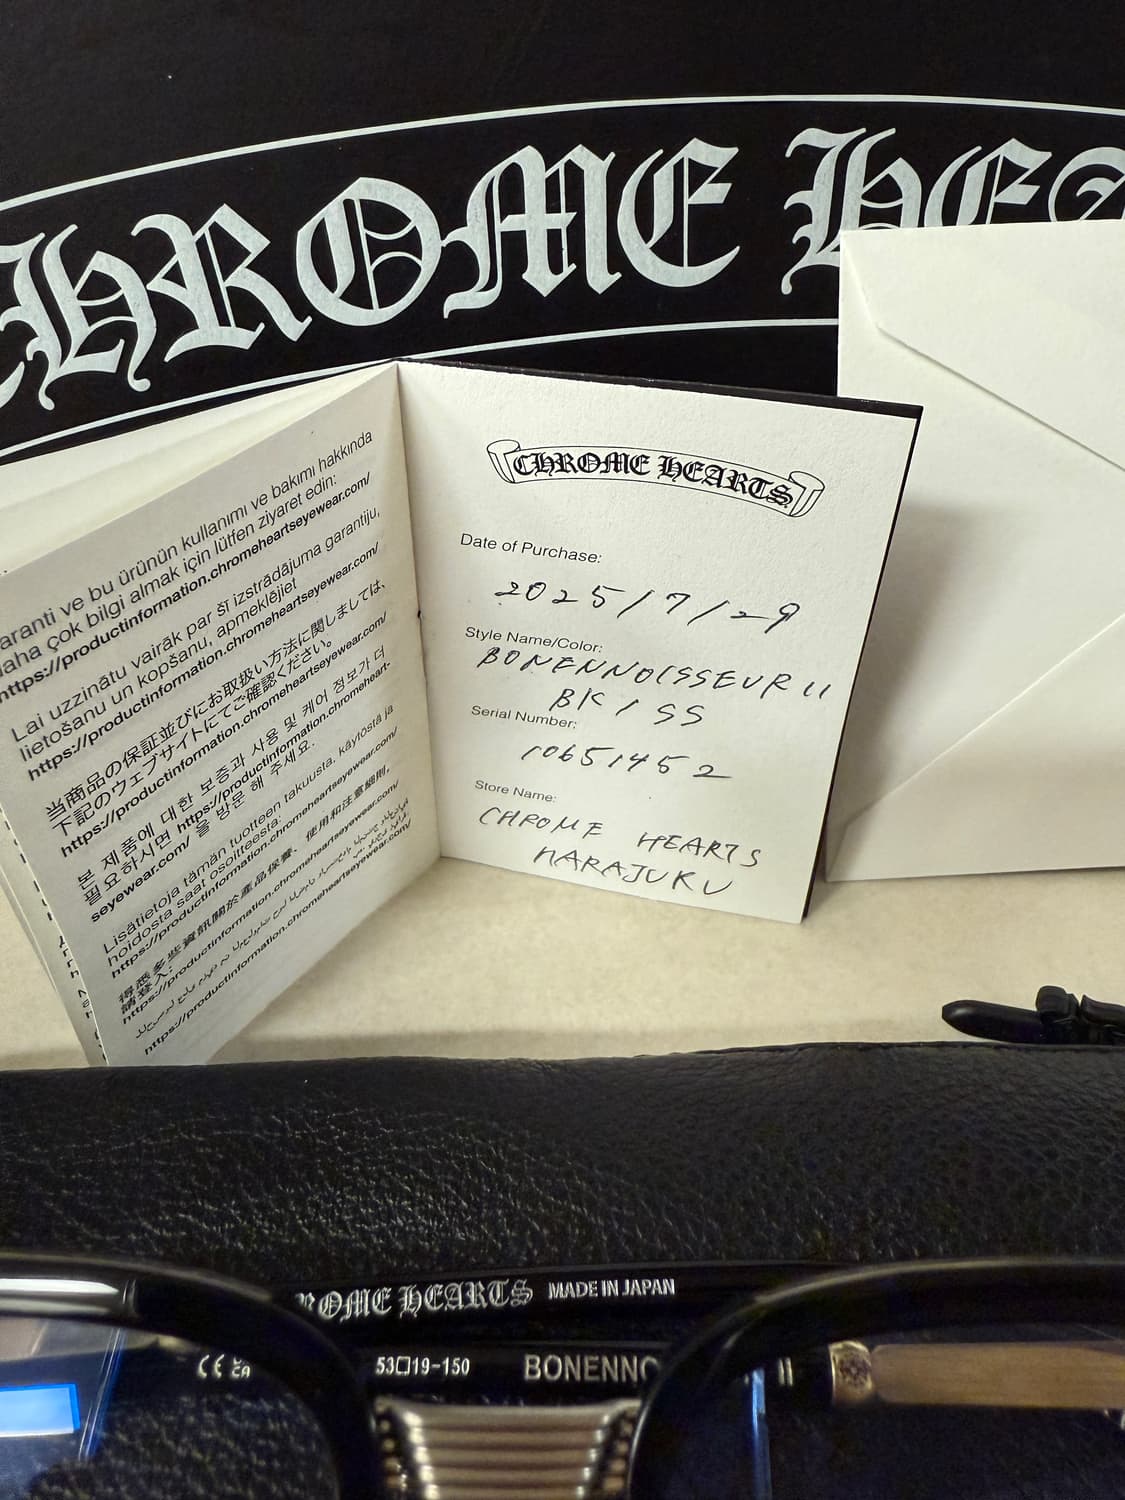 CHROME HEA
CHROME HEARTS
Date of Purchase:
2025/7/29
Style Name/Color:
BONENNOISSEUR II
BK / SS
Serial Number:
10651452
Store Name:
CHROME HEARTS
HARAJUKU
aranti ve bu ürünün kullanımı ve bakımı hakkında
daha çok bilgi almak için lütfen ziyaret edin:
https://productinformation.chromeheartseyewear.com/
Lai uzzinātu vairāk par šī izstrādājuma garantiju,
lietošanu un kopšanu, apmeklējiet
https://productinformation.chromeheartseyewear.com/
当商品の保証並びにお取扱い方法に関しましては、
下記のウェブサイトにてご確認ください。
https://productinformation.chromeheartseyewear.com/
본 제품에 대한 보증과 사용 및 케어 정보가 더
필요하시면 https://productinformation.chromeheart-
seyewear.com/ 을 방문 해 주세요.
Lisätietoja tämän tuotteen takuusta, käytöstä ja
hoidosta saat osoitteesta:
https://productinformation.chromeheartseyewear.com/
得悉多些資訊關於產品保養、使用和注意細則,
請登入:
https://productinformation.chromeheartseyewear.com/
https://productinformation.chromeheartseyewear.com/
ROME HEARTS MADE IN JAPAN
CE UK CA 53□19-150 BONENNO II